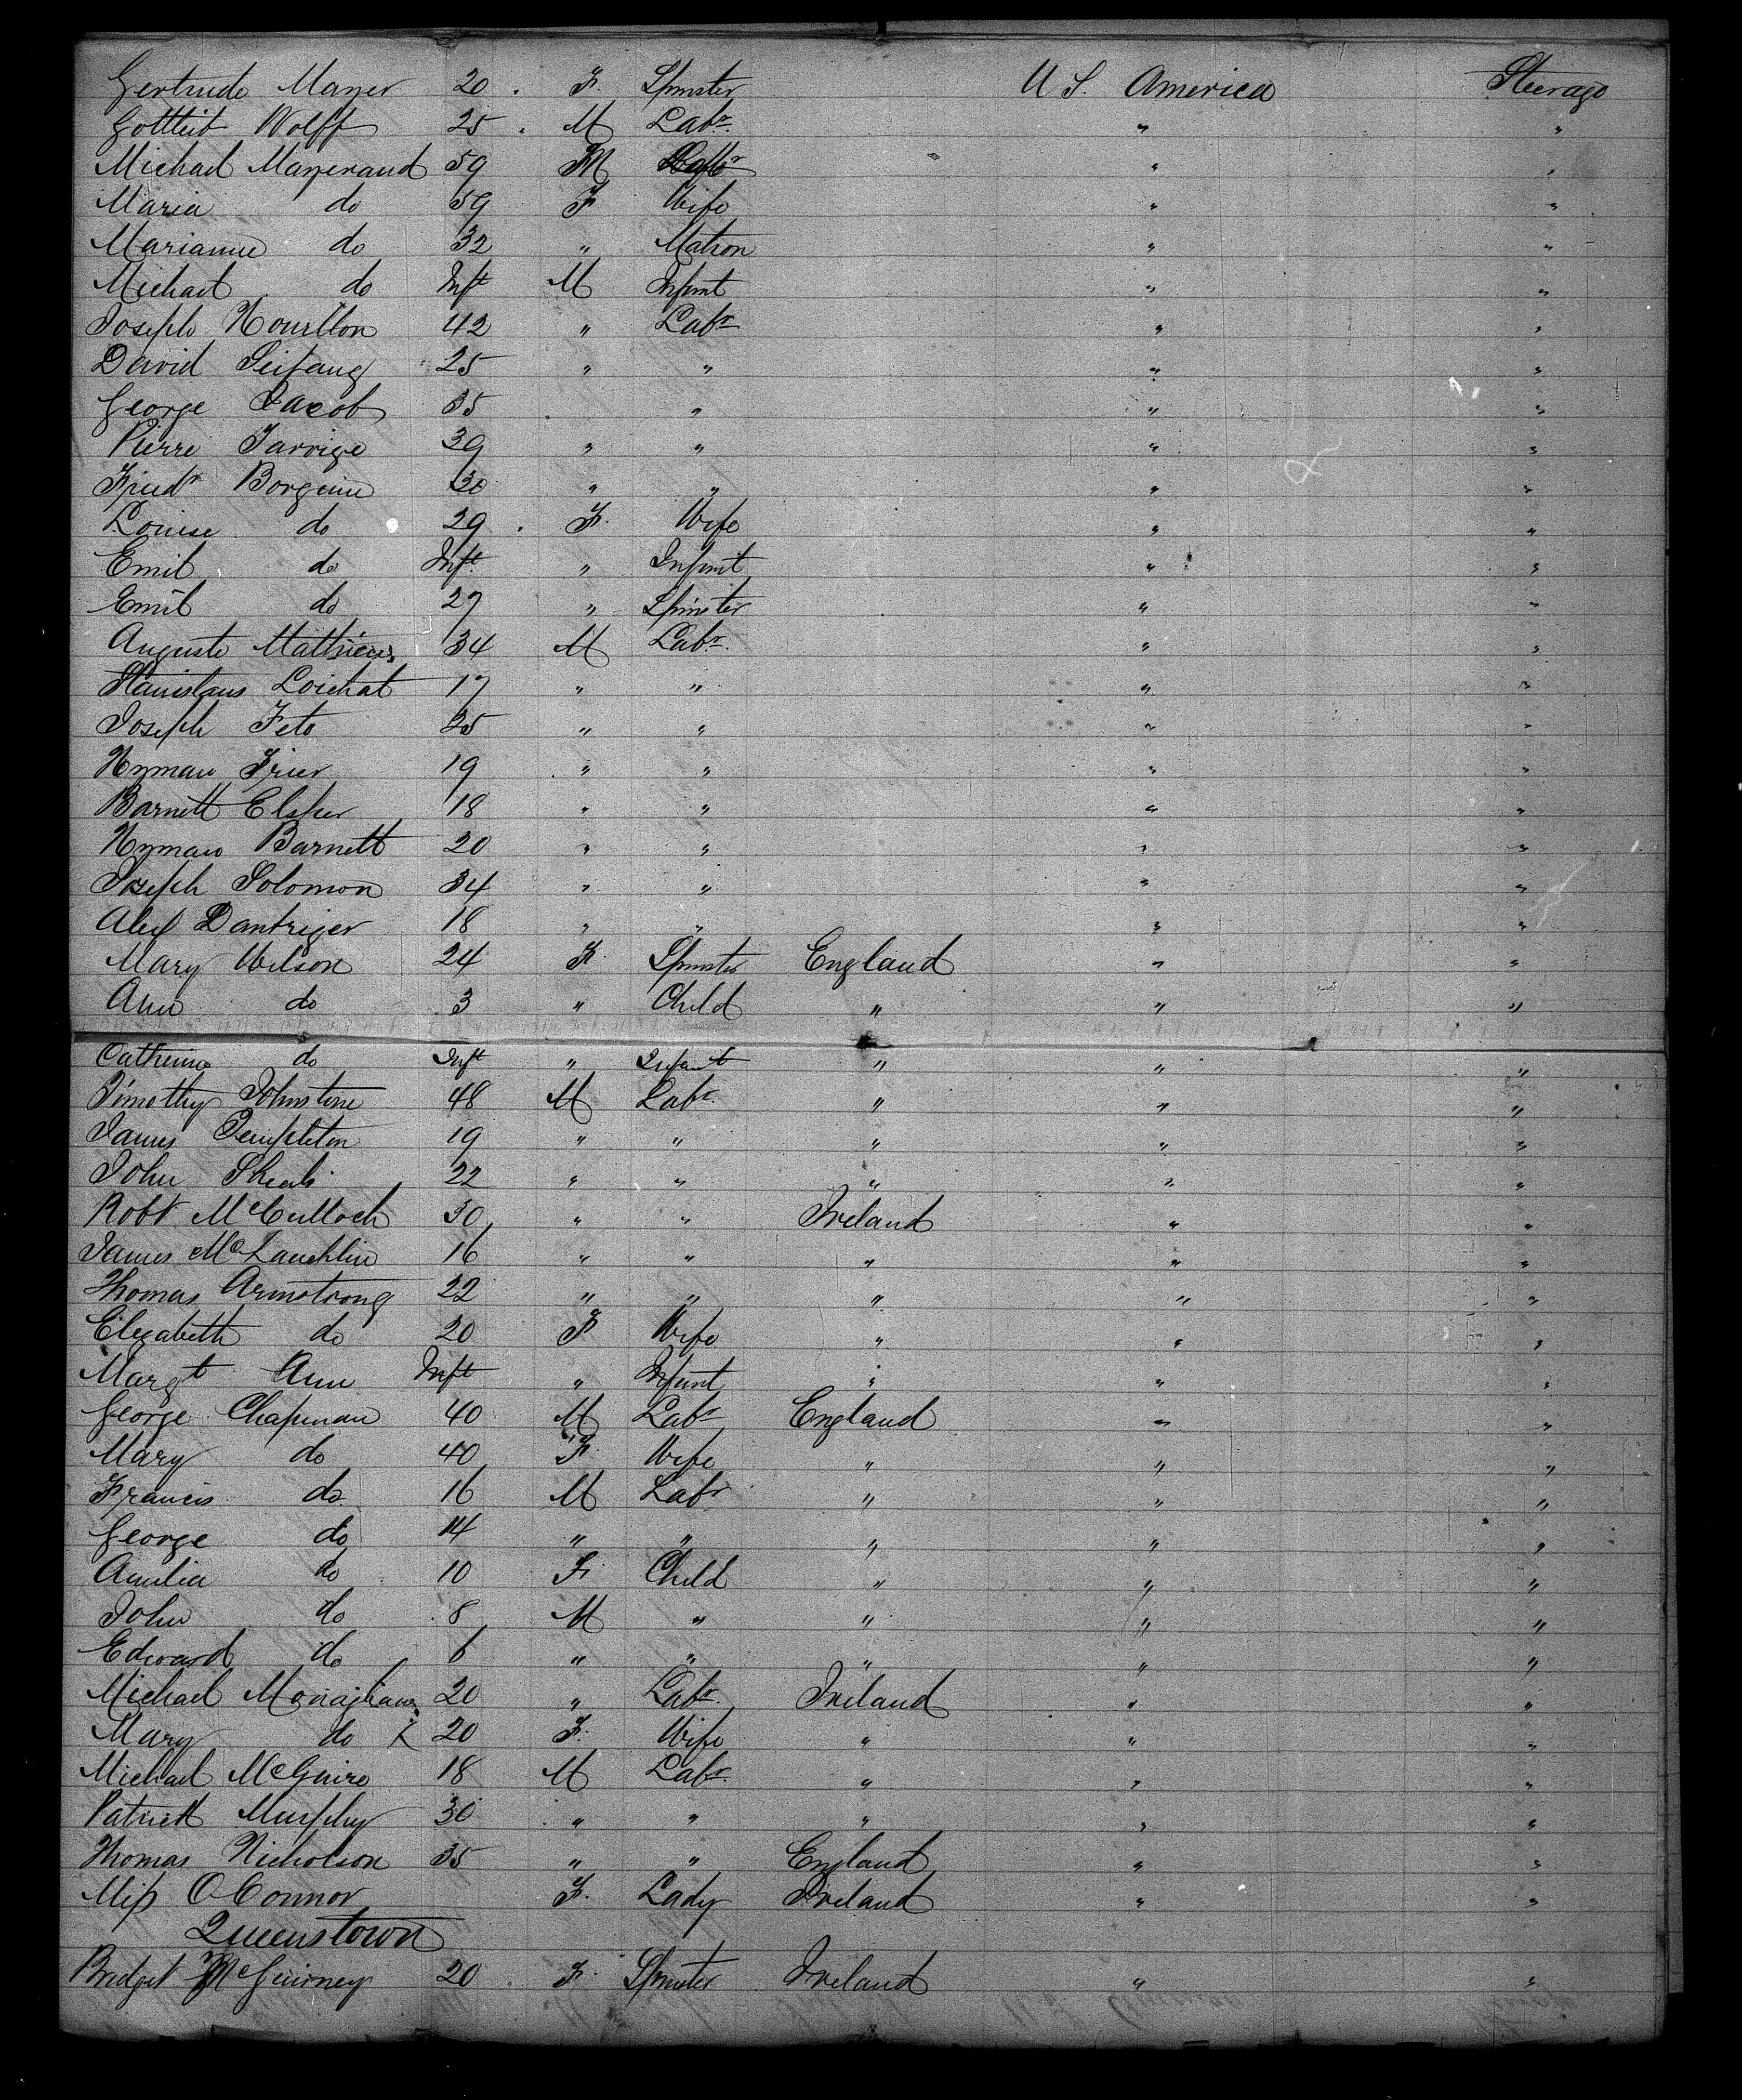 Gertrude Mayer 20 . F. Spinster U S. America Steerage
Gottleib Wolff 25 . M Labr. " "
Michael Mayeraud 59 M Labr " "
Maria do 59 F Wife " "
Marianne do 32 " Matron " "
Michael do Inft M Infant " "
Joseph Hourlton 42 " Labr " "
David Seitang 25 " " " "
George Jacob 35 . " " "
Pierre Jarrige 39 " " " "
Friedr Borgeine 30 " " " "
Louise do 29 . F. Wife " "
Emil do Inft " Infant " "
Emil do 27 " Spinster " "
Auguste Matthieu 34 M Labr. " "
Stanislaus Loichat 17 " " " "
Joseph Fete 25 " " " "
Hyman Frier 19 " " " "
Barnett Elsker 18 " " " "
Hyman Barnett 20 " " " "
Joseph Solomon 34 " " " "
Alex Dantziger 18 " " " "
Mary Wilson 24 F. Spinster England " "
Ann do 3 " Child " " "
Catherine do Inft " Infant " " "
Timothy Johnstone 48 M Labr. " " "
James Templeton 19 " " " " "
John Sheals 22 " " " " "
Robt McCulloch 30 " " Ireland " "
James McLauchlin 16 " " " " "
Thomas Armstrong 22 " " " " "
Elizabeth do 20 F Wife " " "
Margt Ann Inft " Infant " " "
George Chapman 40 M Labr England " "
Mary do 40 F. Wife " " "
Francis do 16 M Labr " " "
George do 14 " " " " "
Amelia do 10 F. Child " " "
John do 8 M " " " "
Edward do 6 " " " " "
Michael Monaghan 20 " Labr. Ireland " "
Mary do 20 F. Wife " " "
Michael McGuire 18 M Labr. " " "
Patrick Murphy 30 " " " " "
Thomas Nicholson 35 " " England " "
Miss O'Connor F. Lady Ireland " "
Queenstown
Bridget McGuirney 20 . F. Spinster Ireland " "